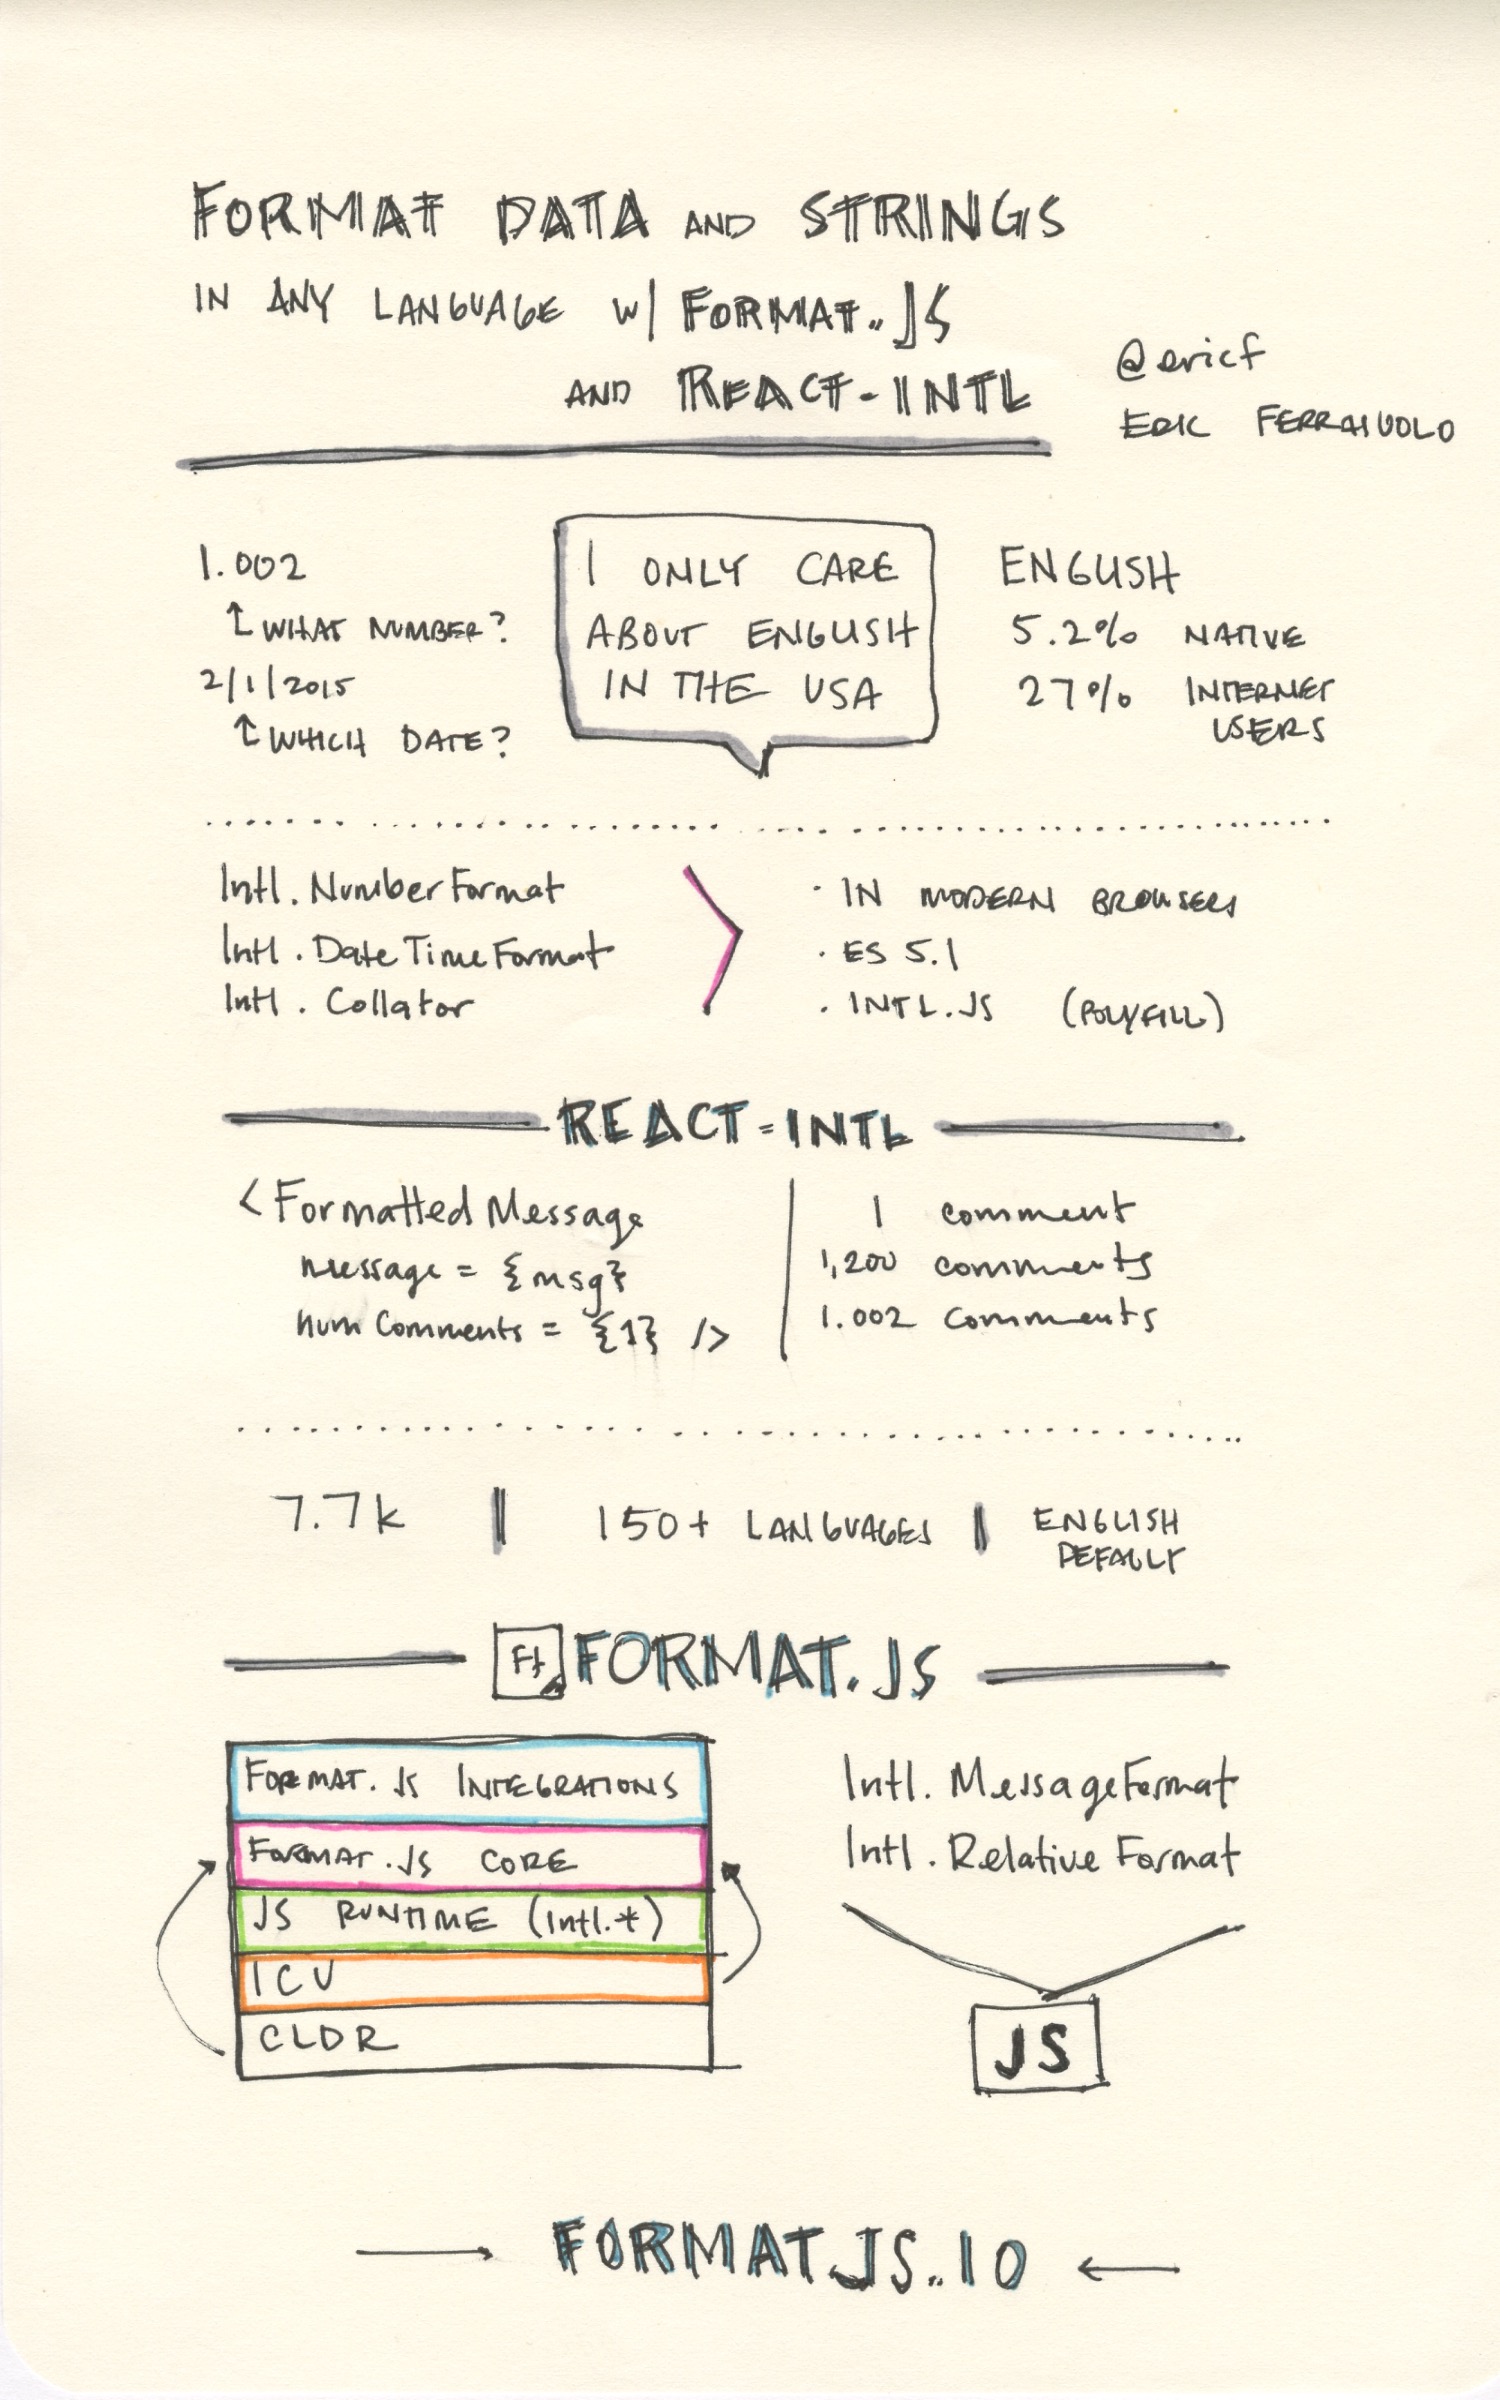 FORMAT DATA AND STRINGS
IN ANY LANGUAGE W/ FORMAT.JS
AND REACT-INTL
@ericf
ERIC FERRAIUOLO
1.002
↑ WHAT NUMBER?
2/1/2015
↑ WHICH DATE?
I ONLY CARE
ABOUT ENGLISH
IN THE USA
ENGLISH
5.2% NATIVE
27% INTERNET
USERS
Intl.NumberFormat
Intl.DateTimeFormat
Intl.Collator
· IN MODERN BROWSERS
· ES 5.1
· INTL.JS (POLYFILL)
REACT-INTL
<FormattedMessage
message = {msg}
numComments = {1} />
1 comment
1,200 comments
1.002 comments
7.7k
150+ LANGUAGES
ENGLISH
DEFAULT
Ft FORMAT.JS
FORMAT.JS INTEGRATIONS
FORMAT.JS CORE
JS RUNTIME (Intl.*)
ICU
CLDR
Intl.MessageFormat
Intl.RelativeFormat
JS
FORMATJS.IO